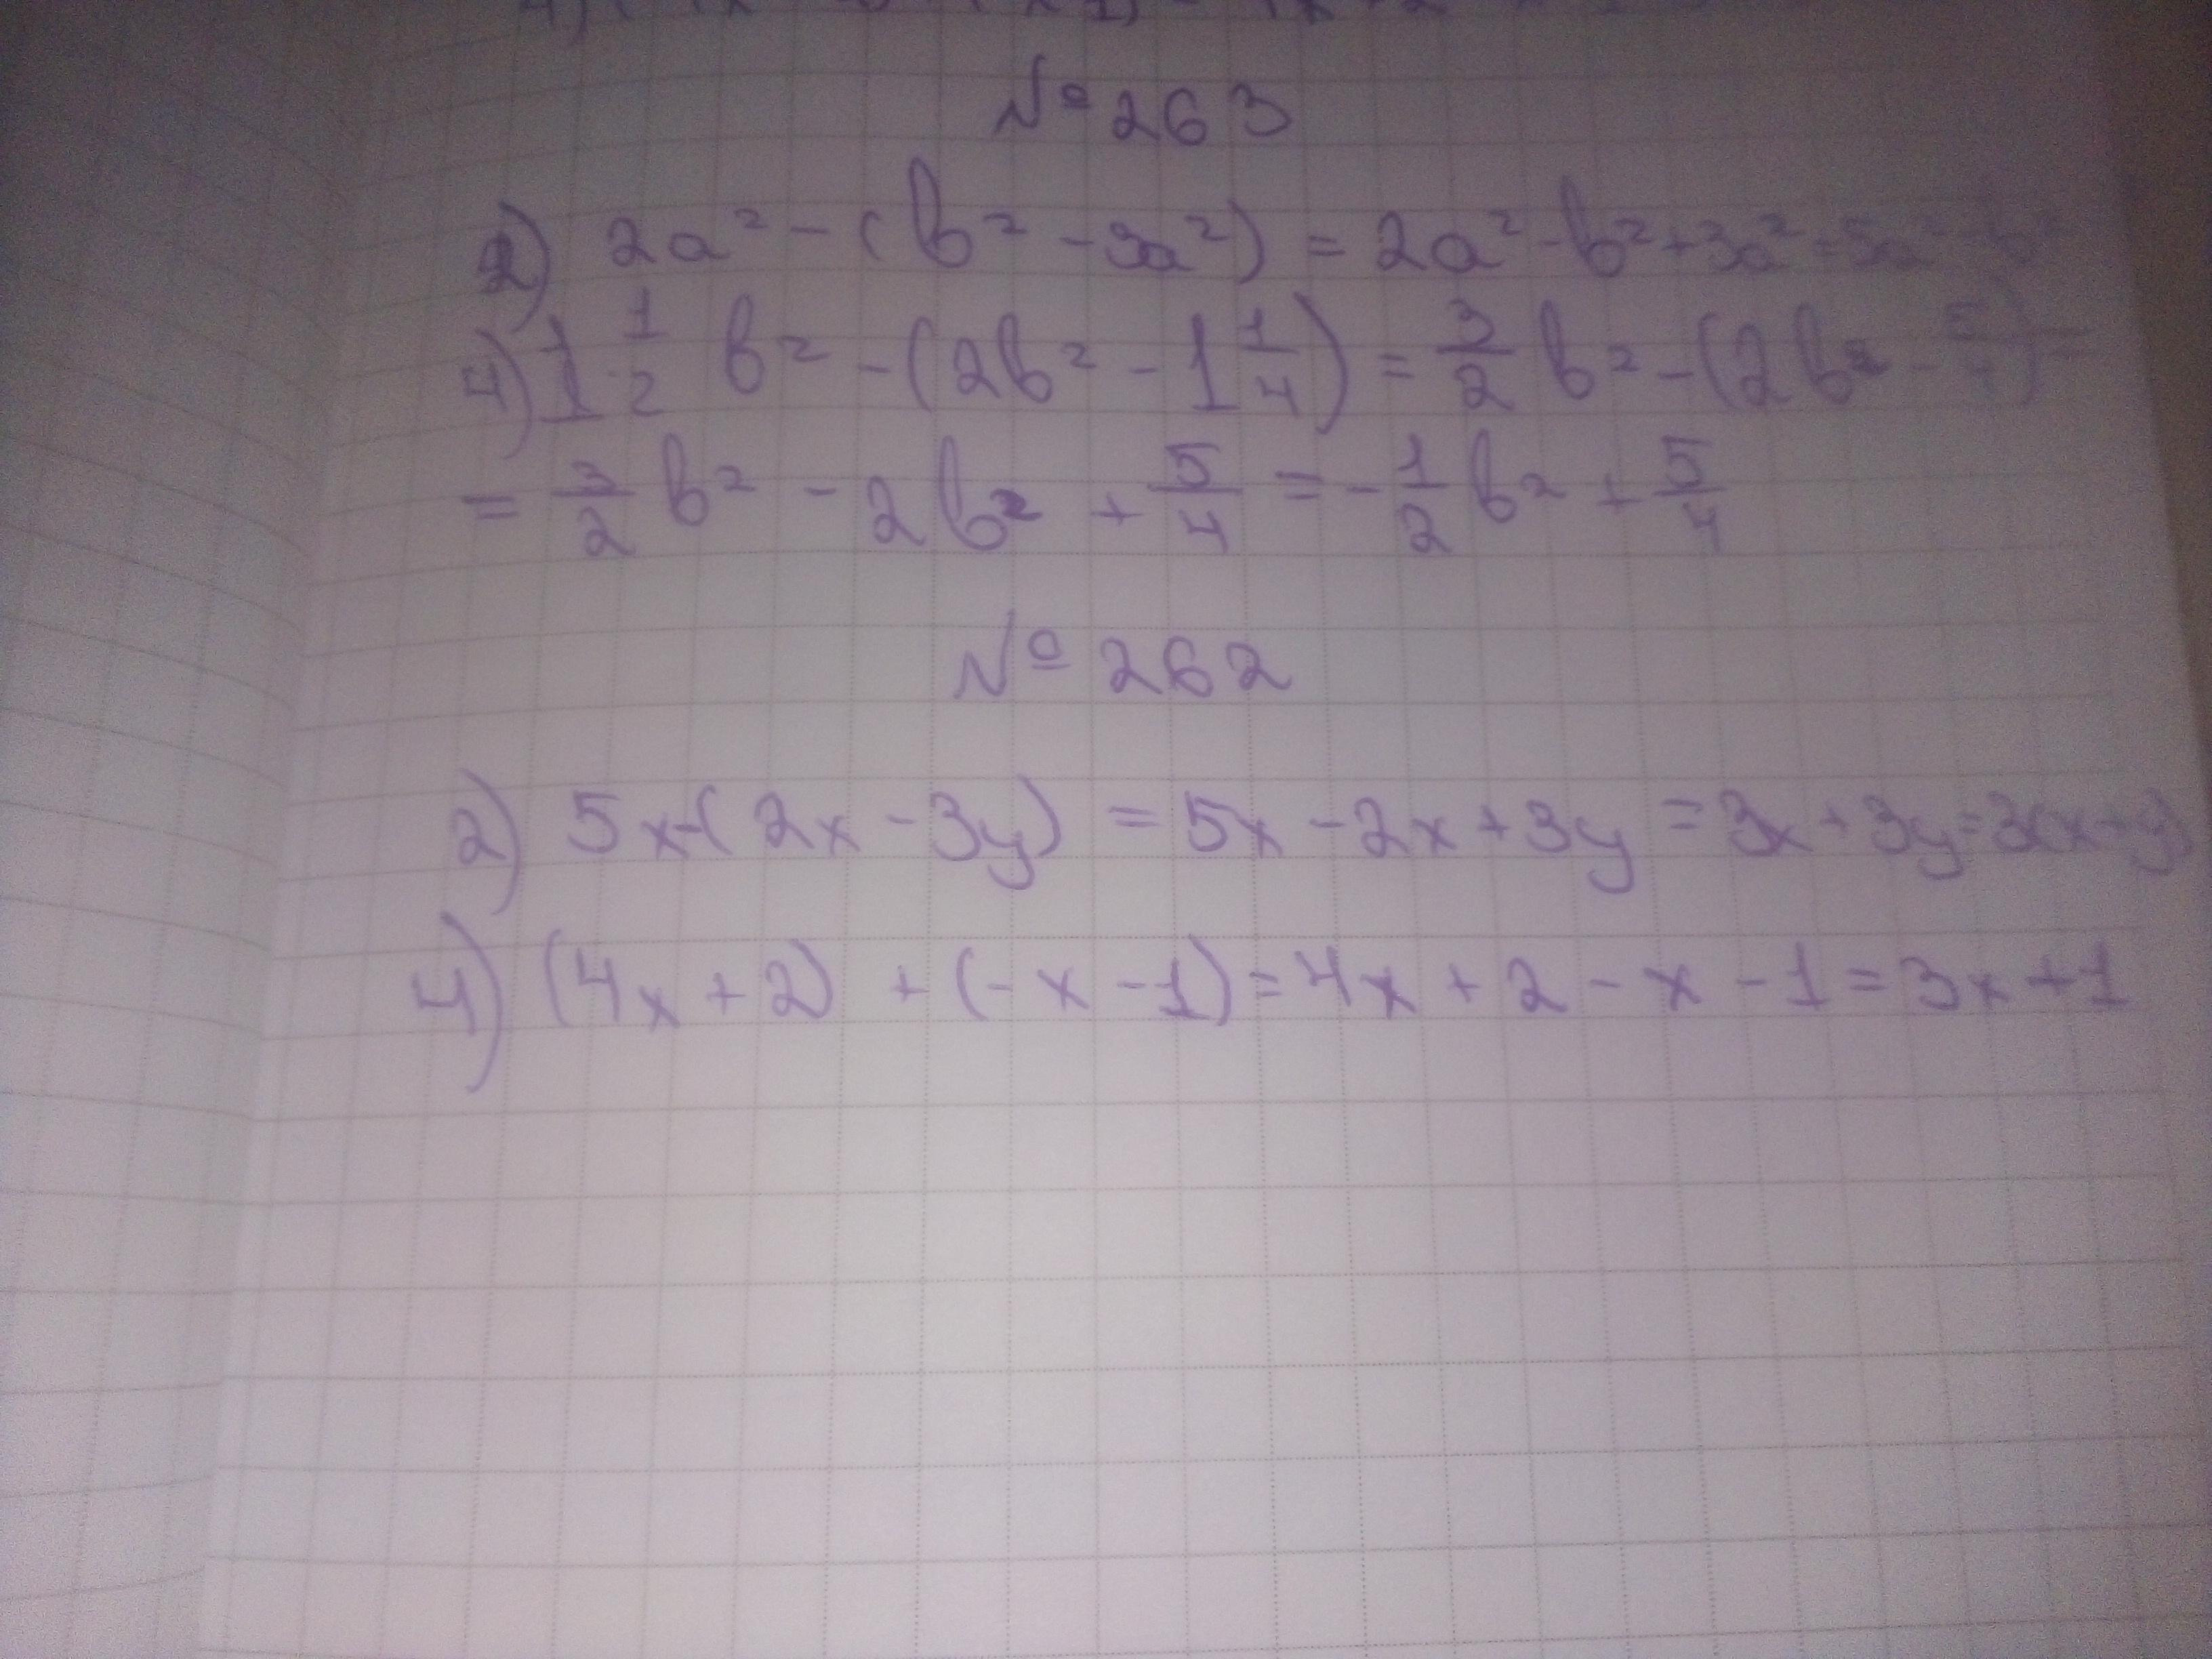 № 263
2) 2a² - (b² - 3a²) = 2a² - b² + 3a² = 5a² - b²
4) 1 1/2 b² - (2b² - 1 1/4) = 3/2 b² - (2b² - 5/4) =
= 3/2 b² - 2b² + 5/4 = - 1/2 b² + 5/4
№ 262
2) 5x-(2x - 3y) = 5x - 2x + 3y = 3x + 3y = 3(x+y)
4) (4x + 2) + (-x - 1) = 4x + 2 - x - 1 = 3x + 1